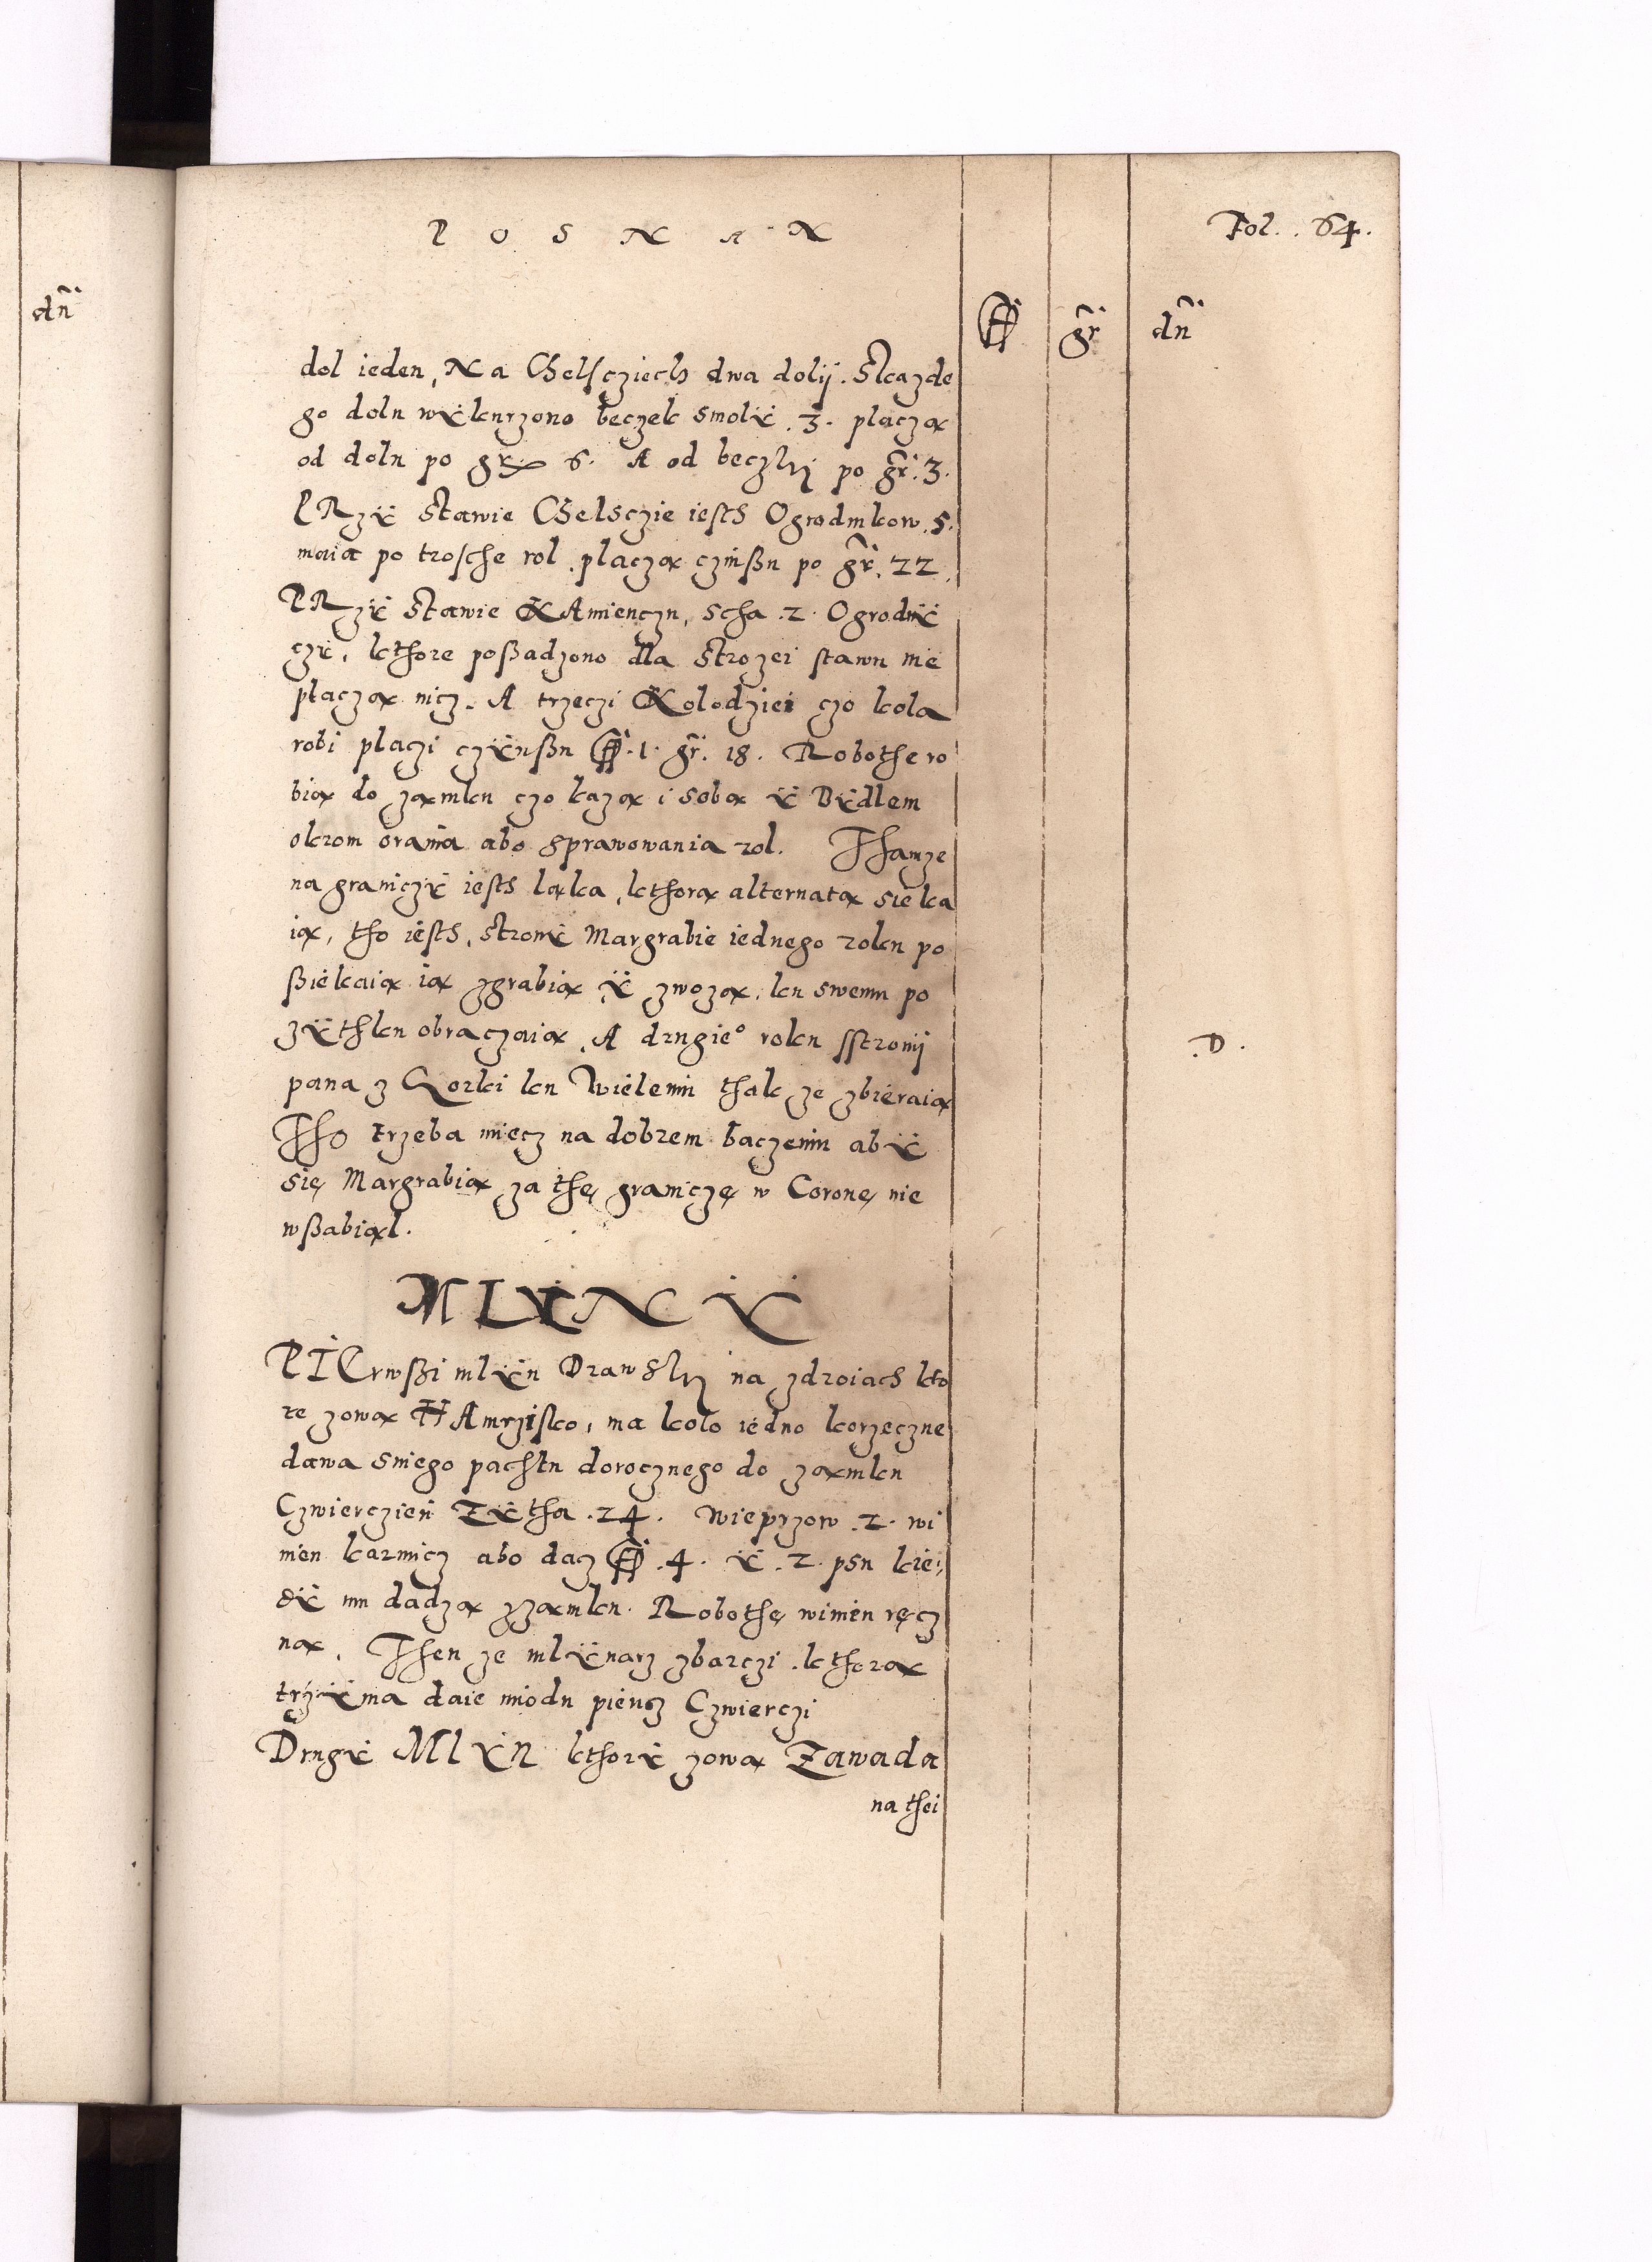 POSNAN
Fol. 64.
dñ
fl gř dñ
dol ieden, Na Chelscziech dwa dolÿ. Skazde
go dolu wÿkurzono beczek smolÿ .3. placzą
od dolu po gr 6. A od beczki po gř. 3.
PRzÿ Stawie Chelsczie iesth Ogrodnikow .5.
maią po trosche rol, placzą czinßu po gř. 22.
PRzÿ Stawie KAmienczu, scha .2. Ogrodnÿ
czÿ, kthore poßadzono dla Strozei stawu nie
płaczą nicz. A trzeczi Kolodziei czo kola
robi placzi czÿnßu fl .1. gř. 18. Robothe ro
bią do zamku czo kazą i sobą ÿ Bÿdlem
okrom orania abo sprawowania rol. Thamze
na graniczÿ iesth ląka, kthorą alternatą sieka
ią, tho iesth, stronÿ Margrabie iednego roku po
ßiekaią ią zgrabią ÿ zwozą, ku swemu po
zÿthku obraczaią, A drugie° roku sstronÿ
pana z Gorki ku Wieleniu thak ze zbieraią
Tho trzeba miecz na dobrem baczeniu abÿ
się Margrabią za thę graniczę w Coronę nie
wßabiąl.
MLÿNÿ
PIErwßi mlÿn Drawski na zdroiach kto
re zową HAmrzisko, ma kolo iedno korzeczne
dawa sniego pachtu dorocznego do zamku
Czwierczień Zÿtha .24. Wieprzow .2. wi
nien karmicz abo dacz fl .4. ÿ .2. psu kie,
dÿ mu dadzą zzamku. Robothę winien ręcz
ną. Then ze mlÿnarz zbarczi, kthorą
trzÿma daie miodu piencz Czwierczi
Drugÿ MlÿN kthorÿ zową Zawada
na thei
.D.